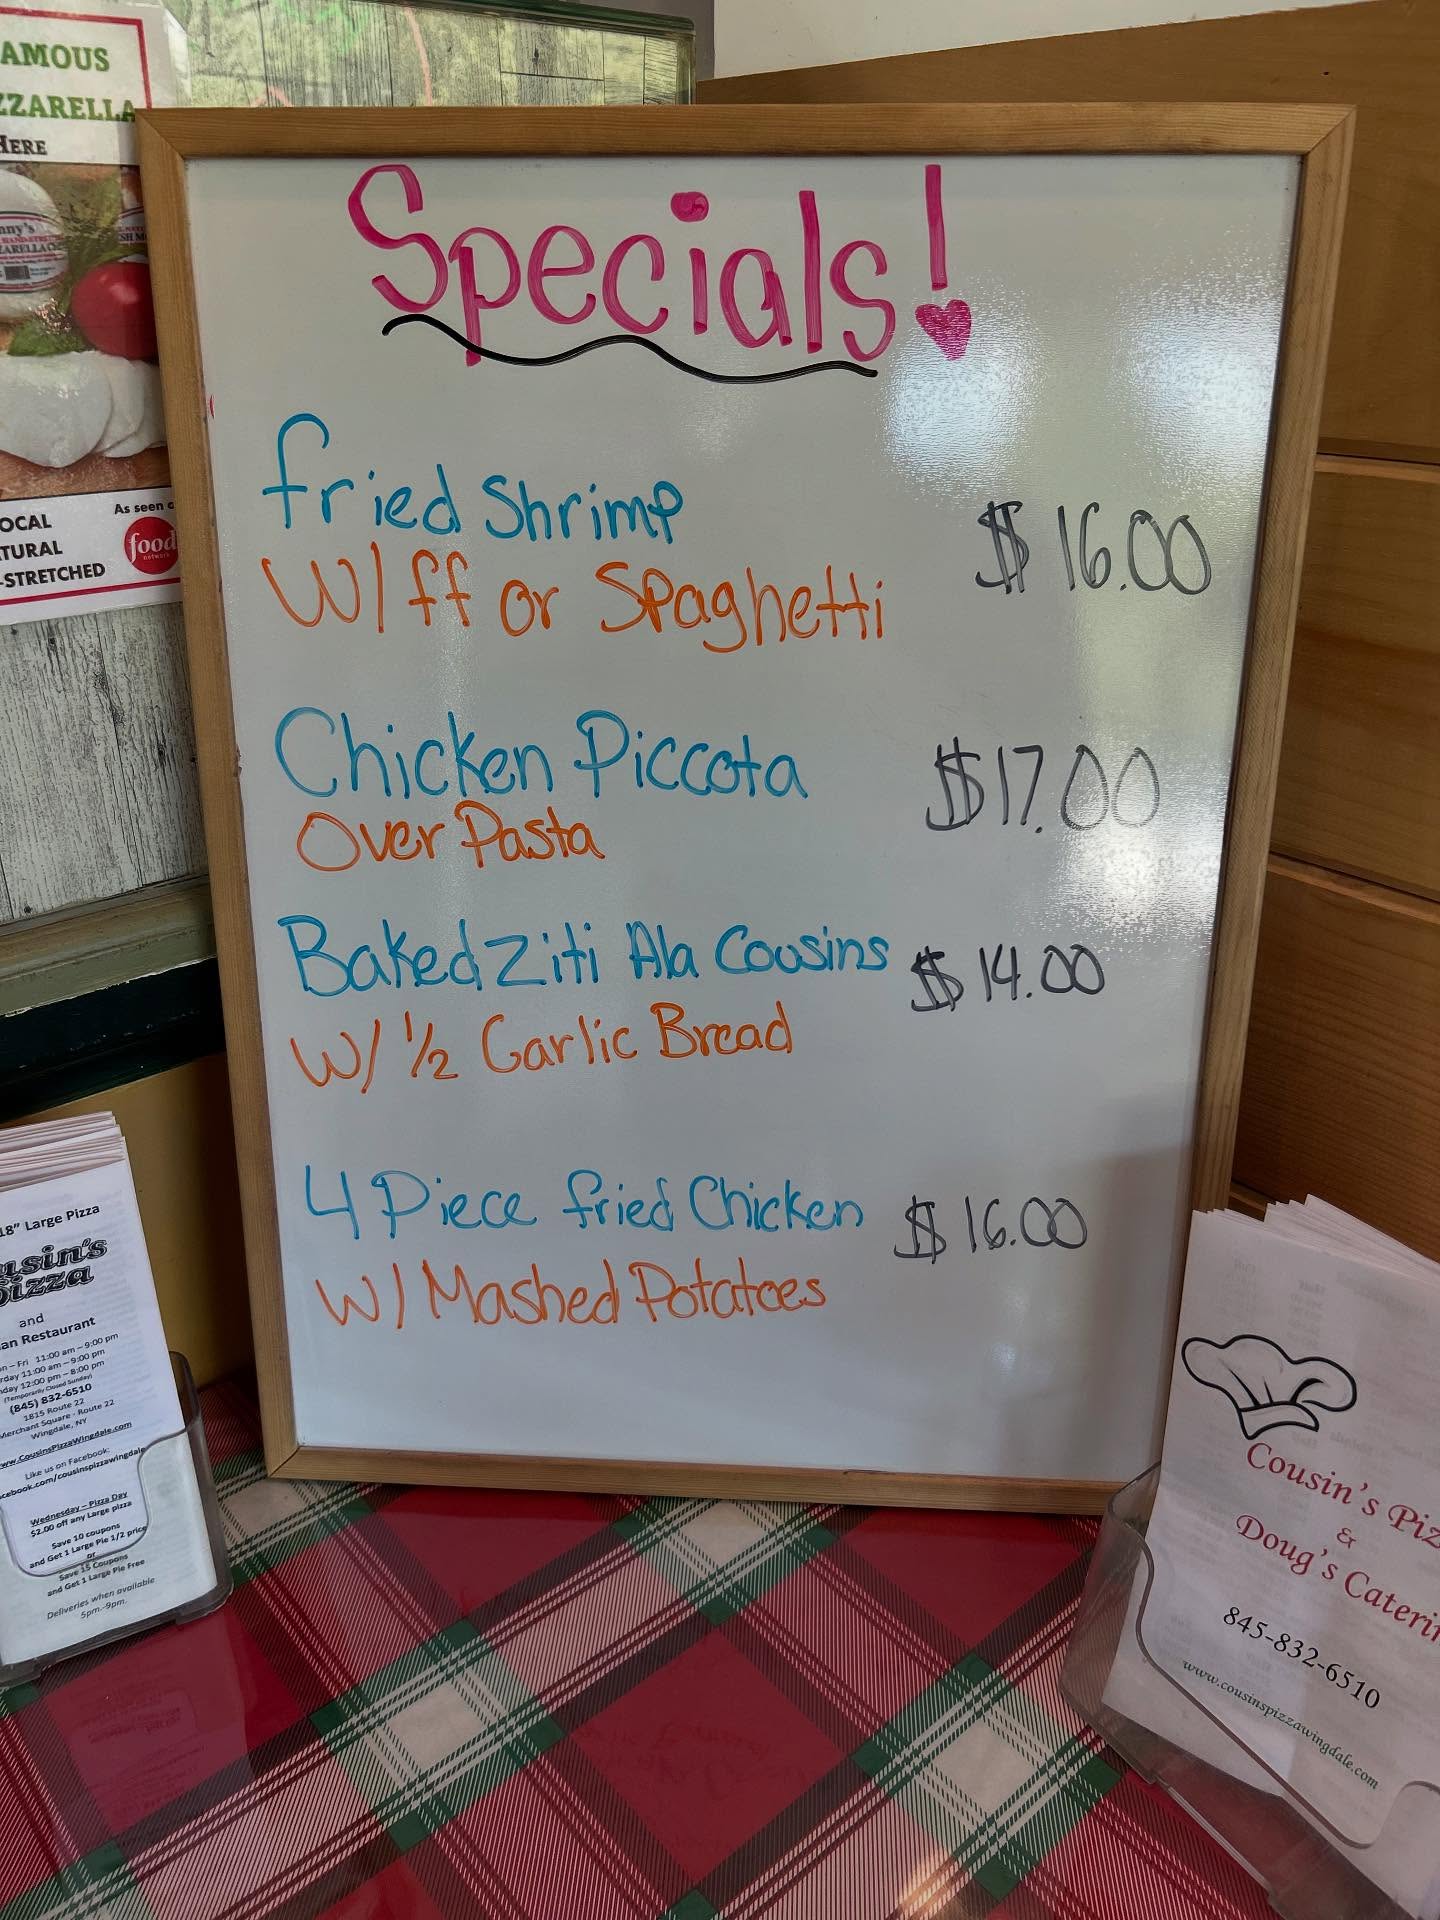 Specials!
fried Shrimp $16.00
W/ ff or Spaghetti
Chicken Piccota $17.00
Over Pasta
Baked Ziti Ala Cousins $14.00
W/ ½ Garlic Bread
4 Piece fried Chicken $16.00
W/ Mashed Potatoes
AMOUS
ZZARELLA
HERE
OCAL
TURAL
-STRETCHED
As seen o
food
network
18" Large Pizza
usin's
Pizza
and
an Restaurant
n – Fri 11:00 am – 9:00 pm
rday 11:00 am – 9:00 pm
nday 12:00 pm – 8:00 pm
(Temporarily Closed Sunday)
(845) 832-6510
1815 Route 22
Merchant Square - Route 22
Wingdale, NY
ww.CousinsPizzaWingdale.com
Like us on Facebook:
cebook.com/cousinspizzawingdale
Wednesday – Pizza Day
$2.00 off any Large pizza
Save 10 coupons
and Get 1 Large Pie 1/2 price
or
Save 15 Coupons
and Get 1 Large Pie Free
Deliveries when available
5pm.-9pm.
Cousin's Piz
&
Doug's Caterin
845-832-6510
www.cousinspizzawingdale.com